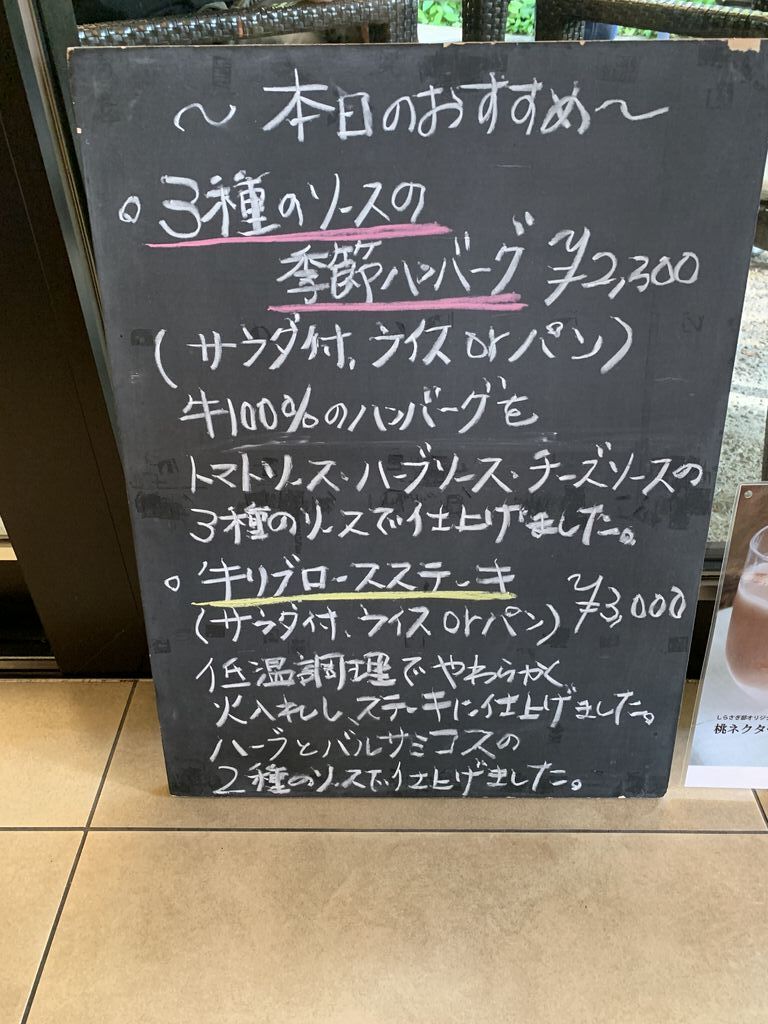 ～ 本日のおすすめ～
○ 3種のソースの
季節ハンバーグ ¥2,300
(サラダ付、ライス or パン)
牛100%のハンバーグを
トマトソース・ハーブソース・チーズソースの
3種のソースで仕上げました。
○ 牛リブロースステーキ ¥3,000
(サラダ付、ライス or パン)
低温調理でやわらかく
火入れし、ステーキに仕上げました。
ハーブとバルサミコスの
2種のソースで仕上げました。
しらさぎ邸オリジ
桃ネクター